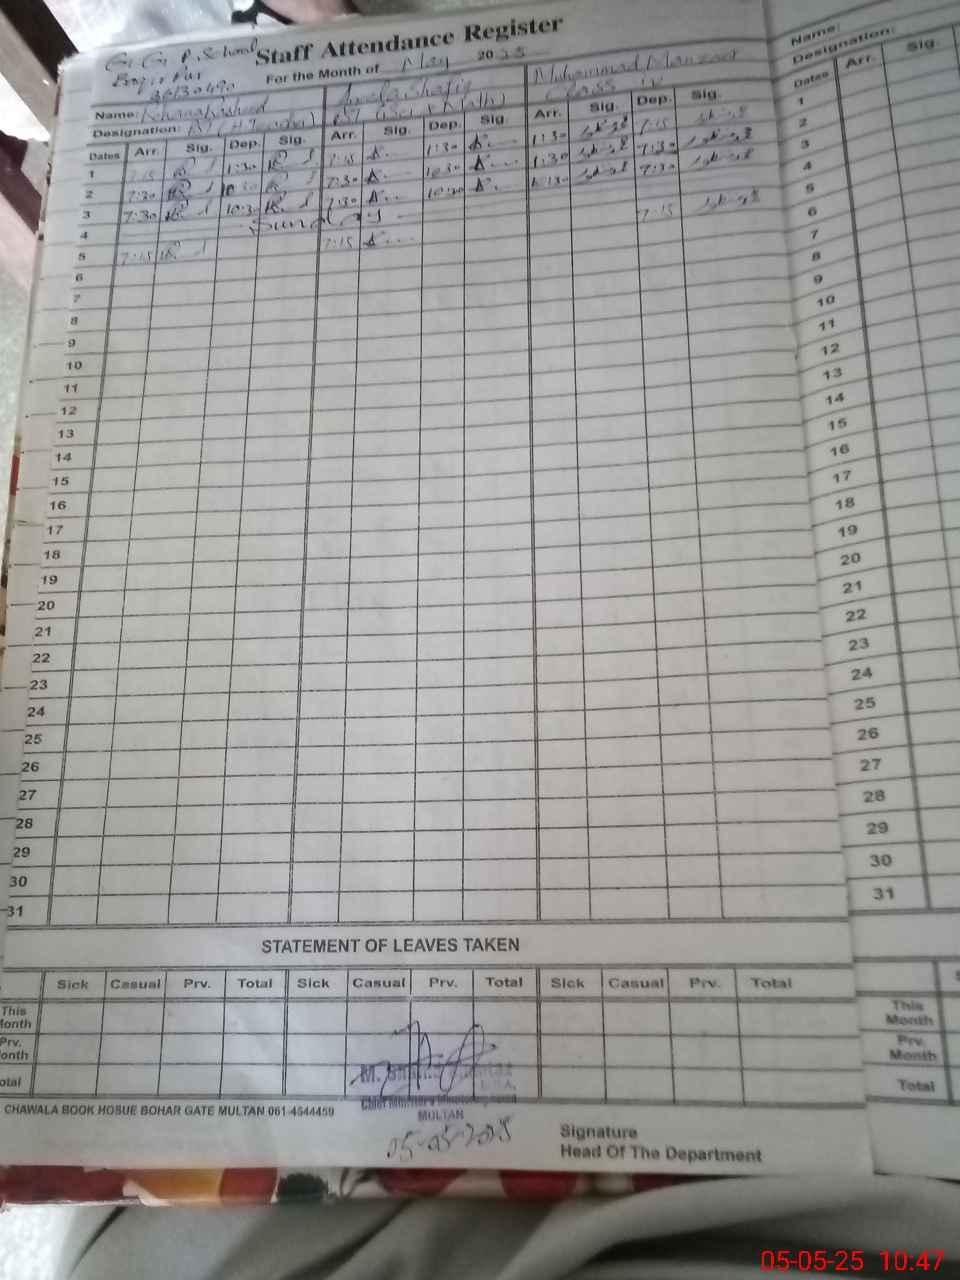 G.G.P. School Staff Attendance Register
36130490 For the Month of May 2025
Name: Rehana Rasheed Shafiq Muhammad Manzoor
Designation: PST (H.Teacher) PST (Sci & Math) Class IV
Dates Arr. Sig. Dep. Sig. Arr. Sig. Dep. Sig. Arr. Sig. Dep. Sig.
1 7:15 1:30 7:15 1:30 1:30 7:15
2 7:30 10:30 7:30 10:30 1:30 7:30
3 7:30 10:30 7:30 10:30 10:30 7:30
4 Sunday
5 7:15 7:15 7:15
6
7
8
9
10
11
12
13
14
15
16
17
18
19
20
21
22
23
24
25
26
27
28
29
30
31
STATEMENT OF LEAVES TAKEN
Sick Casual Prv. Total Sick Casual Prv. Total Sick Casual Prv. Total
This
Month
Prv.
onth
otal
M.
MULTAN
05-05-2025
CHAWALA BOOK HOSUE BOHAR GATE MULTAN 061-4544459
Signature
Head Of The Department
Name:
Designation:
Dates Arr. Sig.
1
2
3
4
5
6
7
8
9
10
11
12
13
14
15
16
17
18
19
20
21
22
23
24
25
26
27
28
29
30
31
This
Month
Prv.
Month
Total
05-05-25 10:47